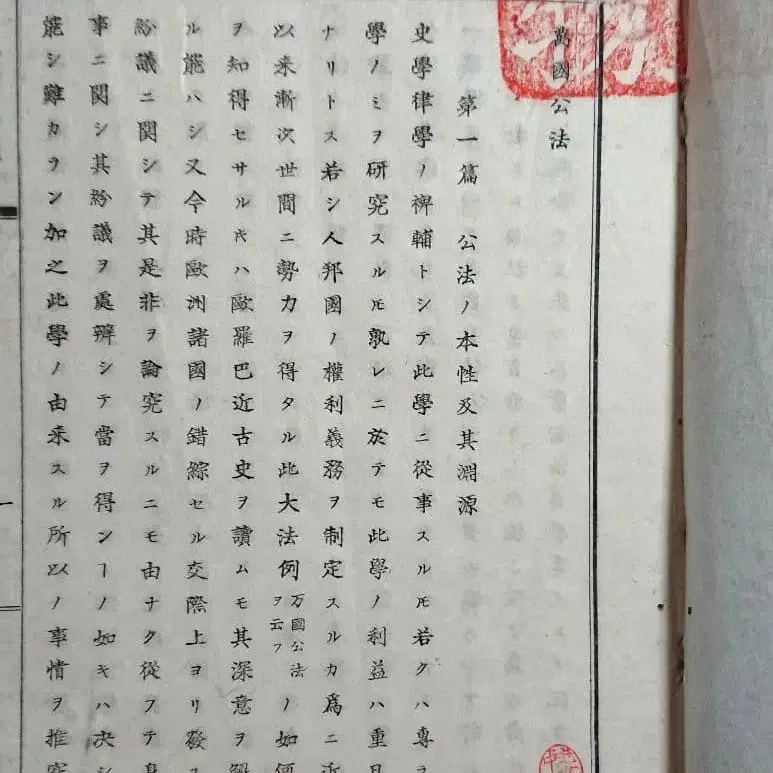 萬國公法
第一篇 公法ノ本性及其淵源
史學律學ノ裨輔トシテ此學ニ從事スル𪜈若クハ專ラ
學ノミヲ研究スル𪜈孰レニ於テモ此學ノ利益ハ重
ナリトス若シ人邦國ノ權利義務ヲ制定スルカ爲ニ近
以来漸次世間ニ勢力ヲ得タル此大法例万國公法ヲ云フノ如何
ヲ知得セサルキハ歐羅巴近古史ヲ讀ムモ其深意ヲ
ル能ハシ又今時歐洲諸國ノ錯綜セル交際上ヨリ發
紛議ニ関シテ其是非ヲ論究スルニモ由ナク從フテ
事ニ関シ其紛議ヲ處辨シテ當ヲ得ンヿノ如キハ決シ
能シ難カラン加之此學ノ由来スル所以ノ事情ヲ推究